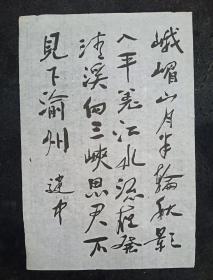 峨嵋山月半輪秋影
入平羌江水流夜發
清溪向三峽思君不
見下渝州 建中